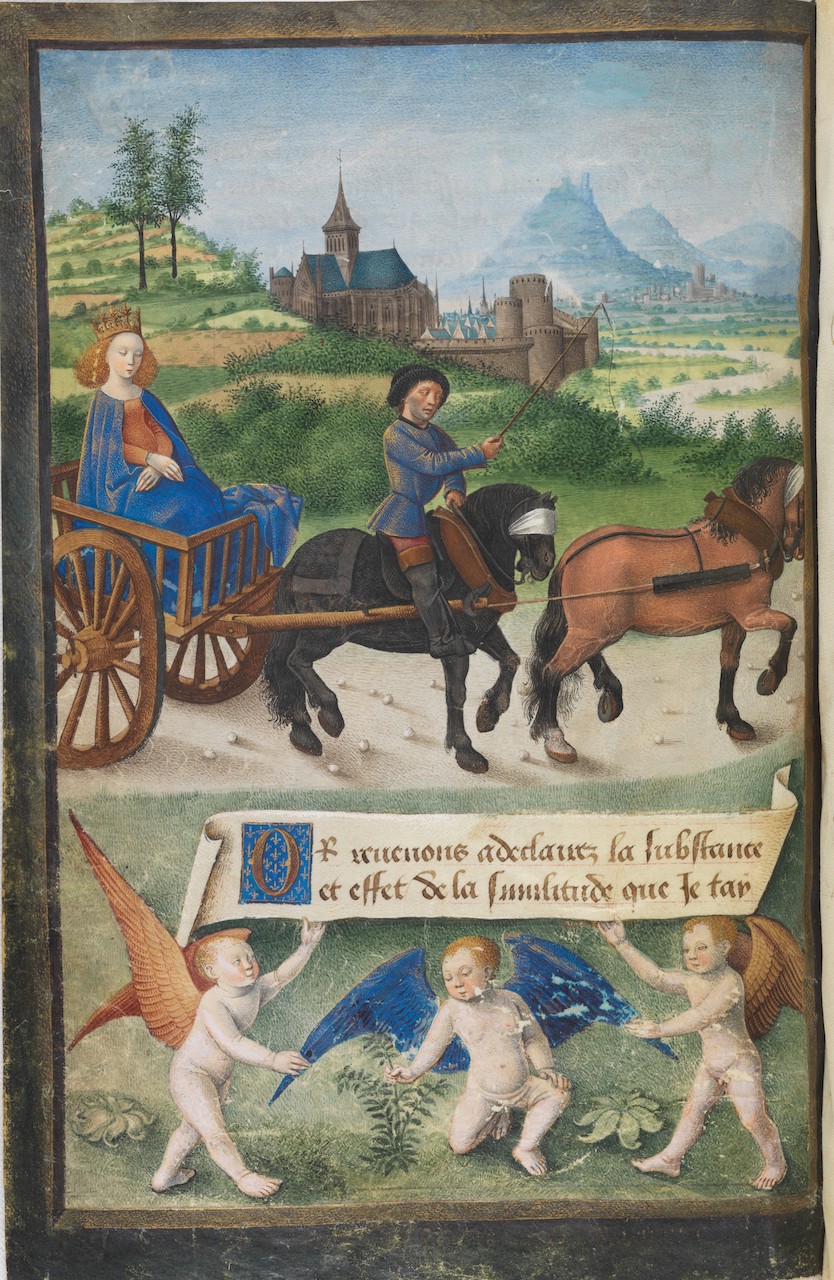 OR reuenons a declairez la substance
et effet de la similitude que Je tay